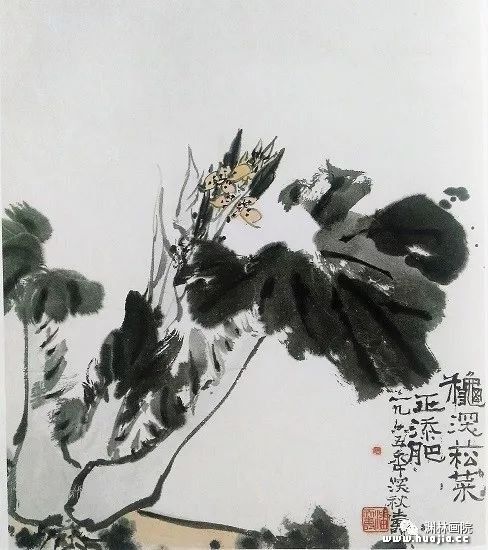 穐深菘菜
正添肥
一九六五年深秋壽
画院
www.huajia.cc